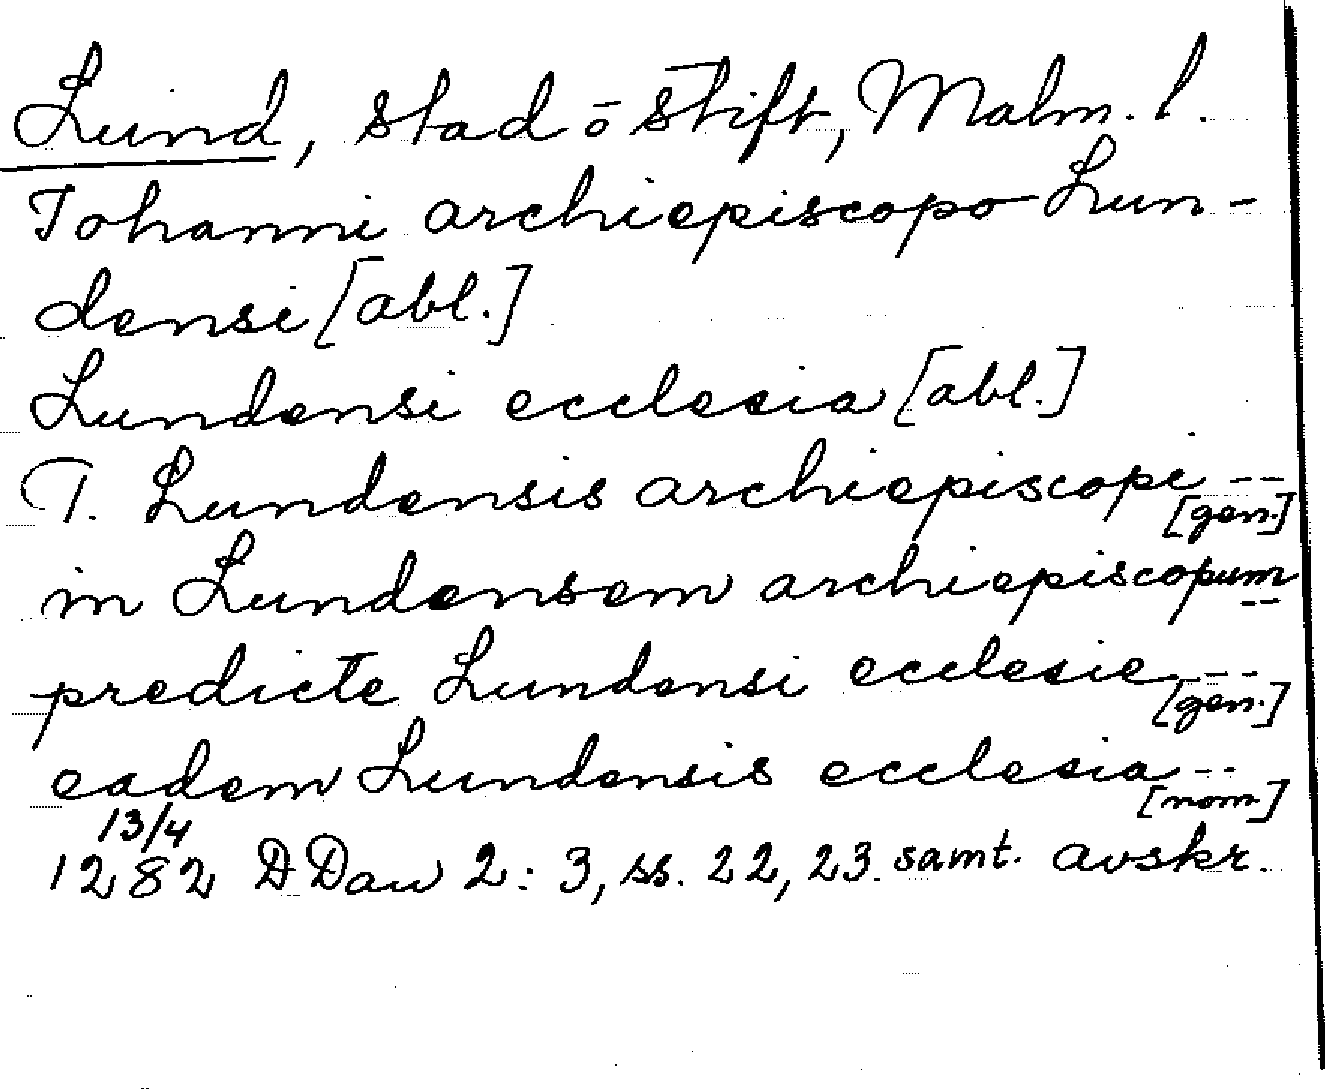 Lund, stad o stift, Malm. l.
Iohanni archiepiscopo Lun-
densi [abl.]
Lundensi ecclesia [abl.]
I. Lundensis archiepiscopi --
[gen.]
in Lundensem archiepiscopum
--
predicte Lundensi ecclesie --
[gen.]
eadem Lundensis ecclesia --
[nom.]
13/4
1282 DDan 2: 3, ss. 22, 23. samt. avskr.